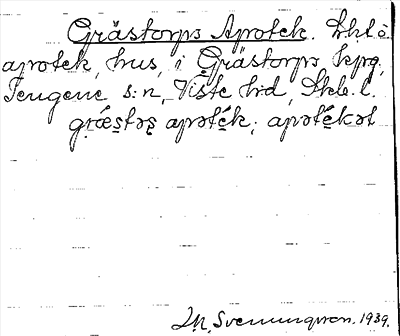 Grästorps Apotek.
apotek, hus, i Grästorps kpg,
Tengene s:n, Viste hd, Skb. l.
græstɔs apotek; apotekət
Svenungsson. 1939.